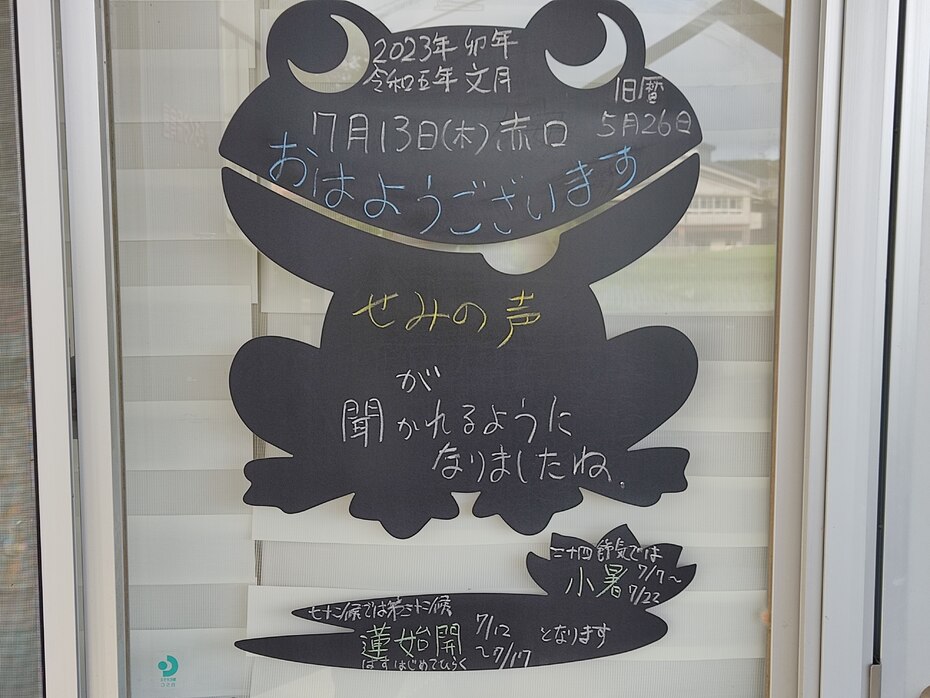 2023年 卯年
令和五年 文月
旧暦
5月26日
7月13日(木) 赤口
おはようございます
せみの声
が
聞かれるように
なりましたね。
二十四節気では
小暑 7/7〜
7/22
七十二候では第三十二候
蓮始開 7/12
〜7/17
となります
はすはじめてひらく